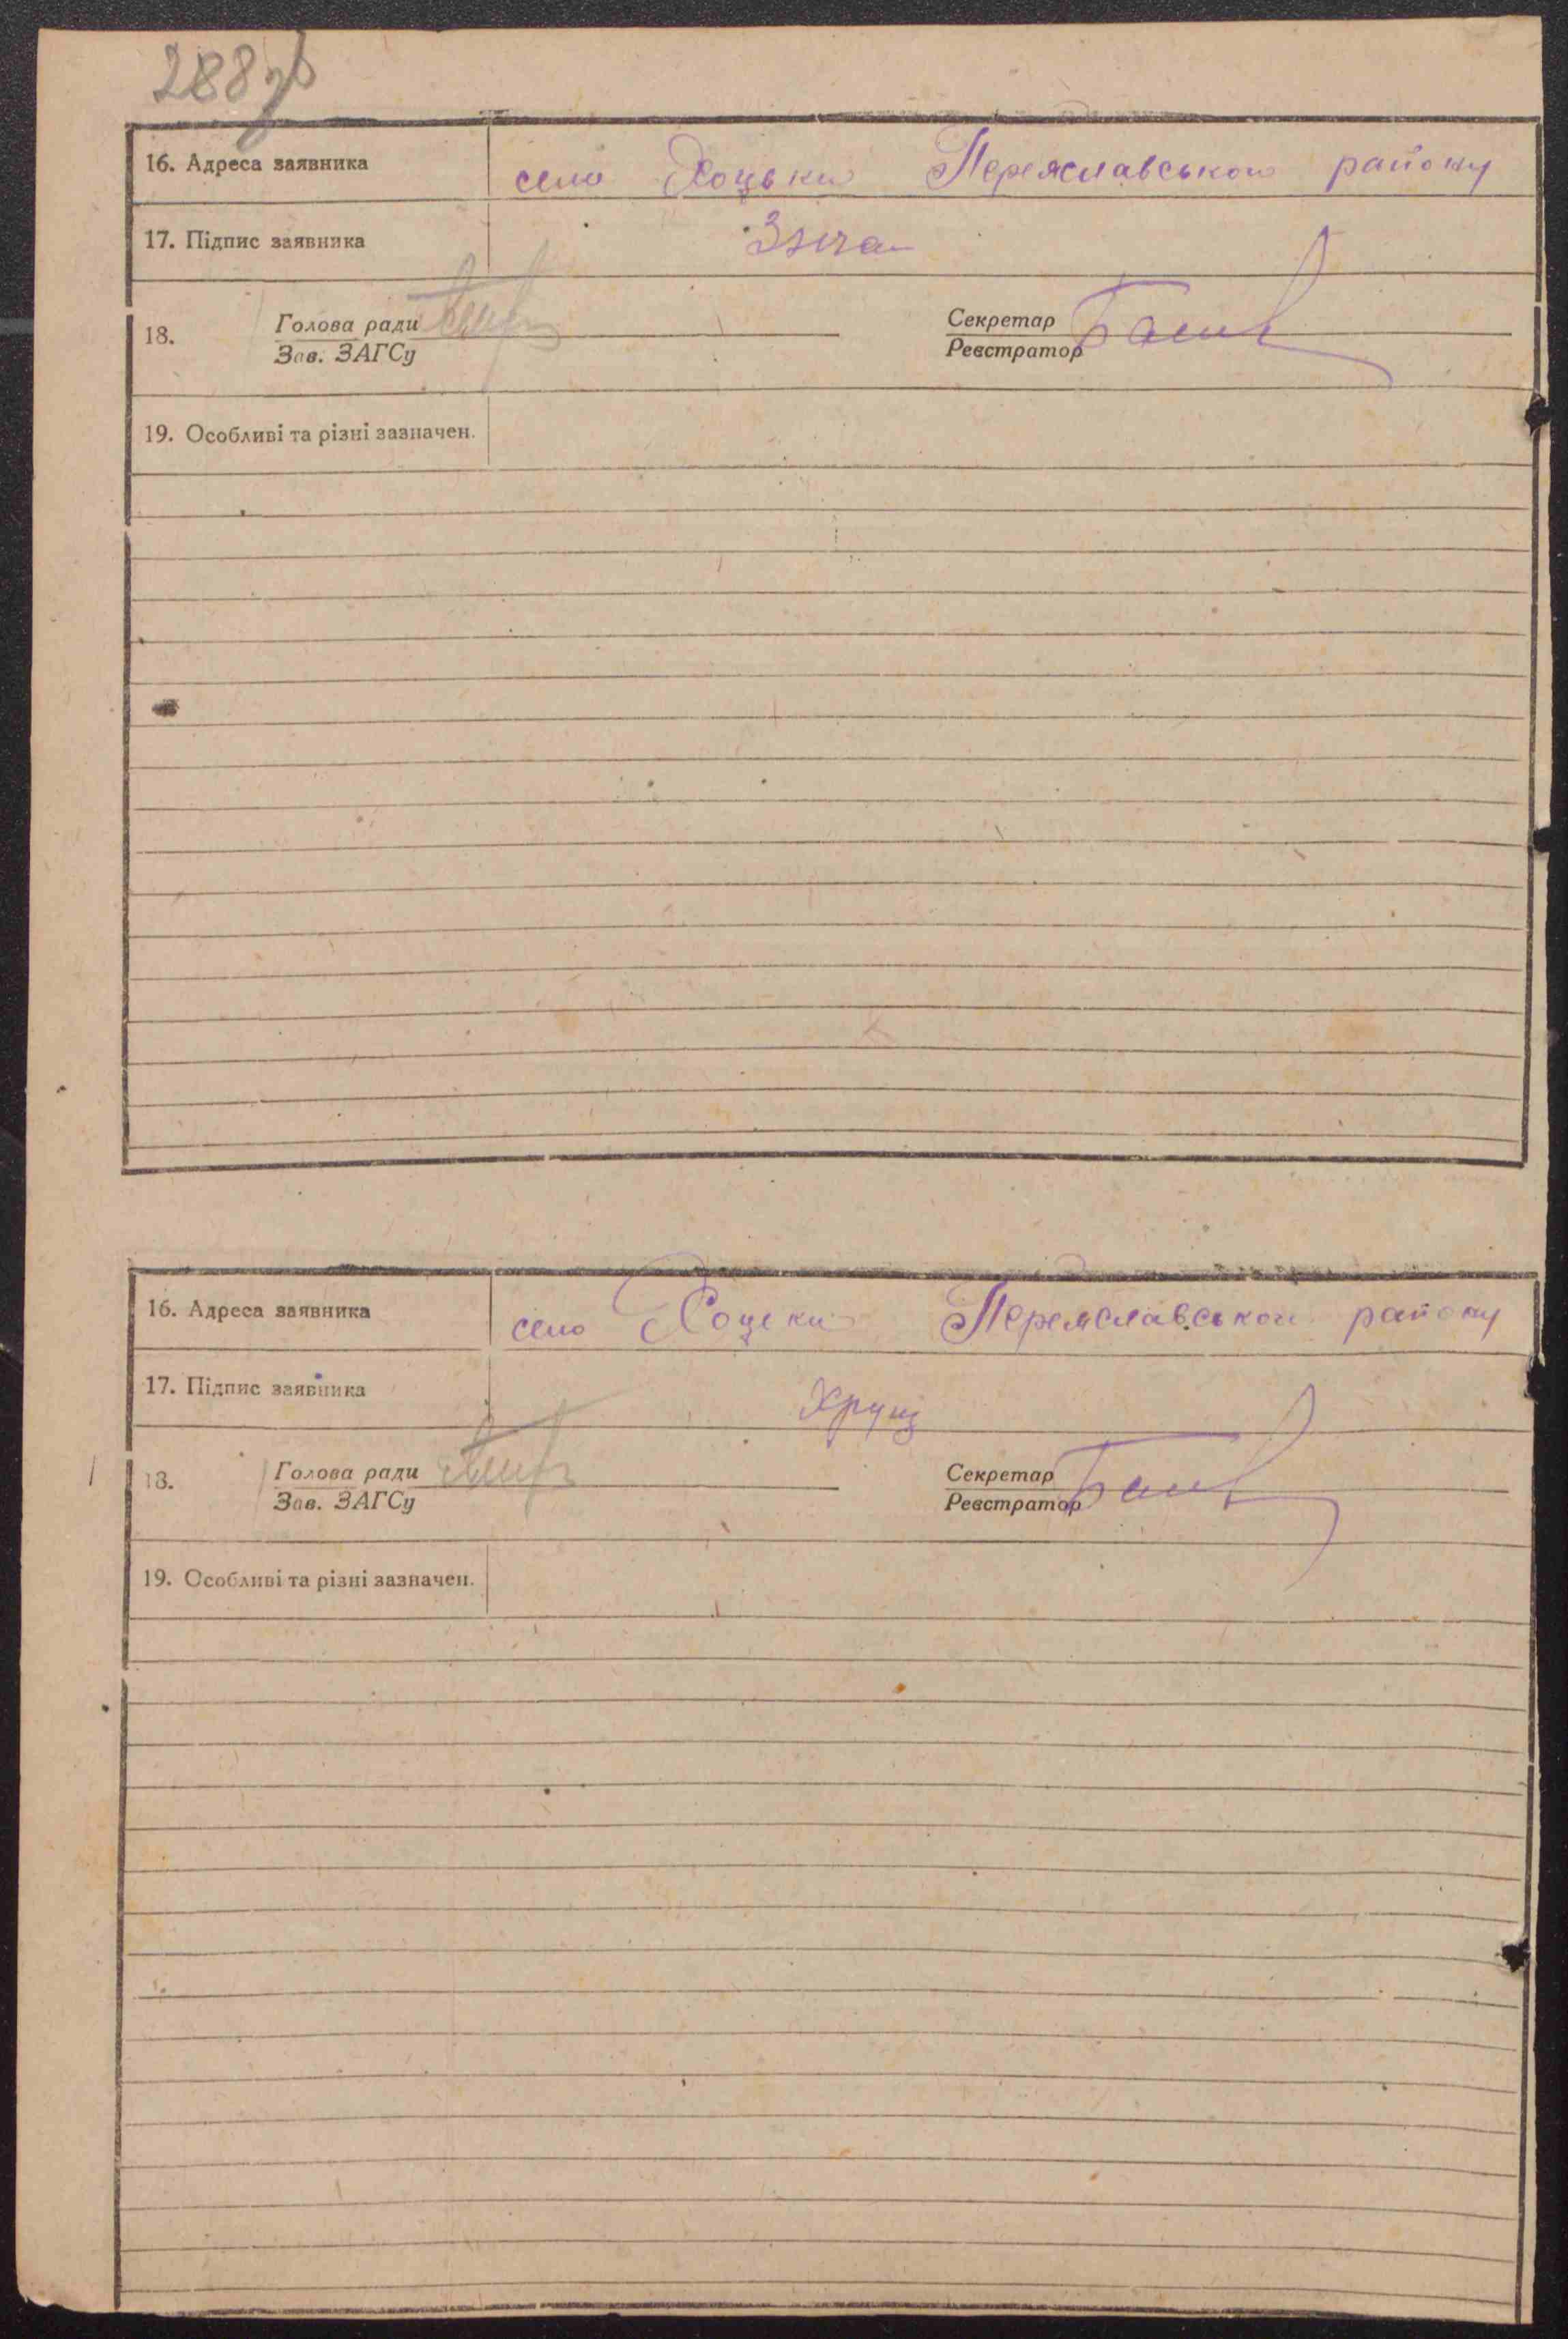 288зв
16. Адреса заявника село Хоцьки Переяславського району
17. Підпис заявника
18. Голова ради Секретар
Зав. ЗАГСу Реєстратор
19. Особливі та різні зазначен.
16. Адреса заявника село Хоцьки Переяславського району
17. Підпис заявника Хрущ
18. Голова ради Секретар
Зав. ЗАГСу Реєстратор
19. Особливі та різні зазначен.